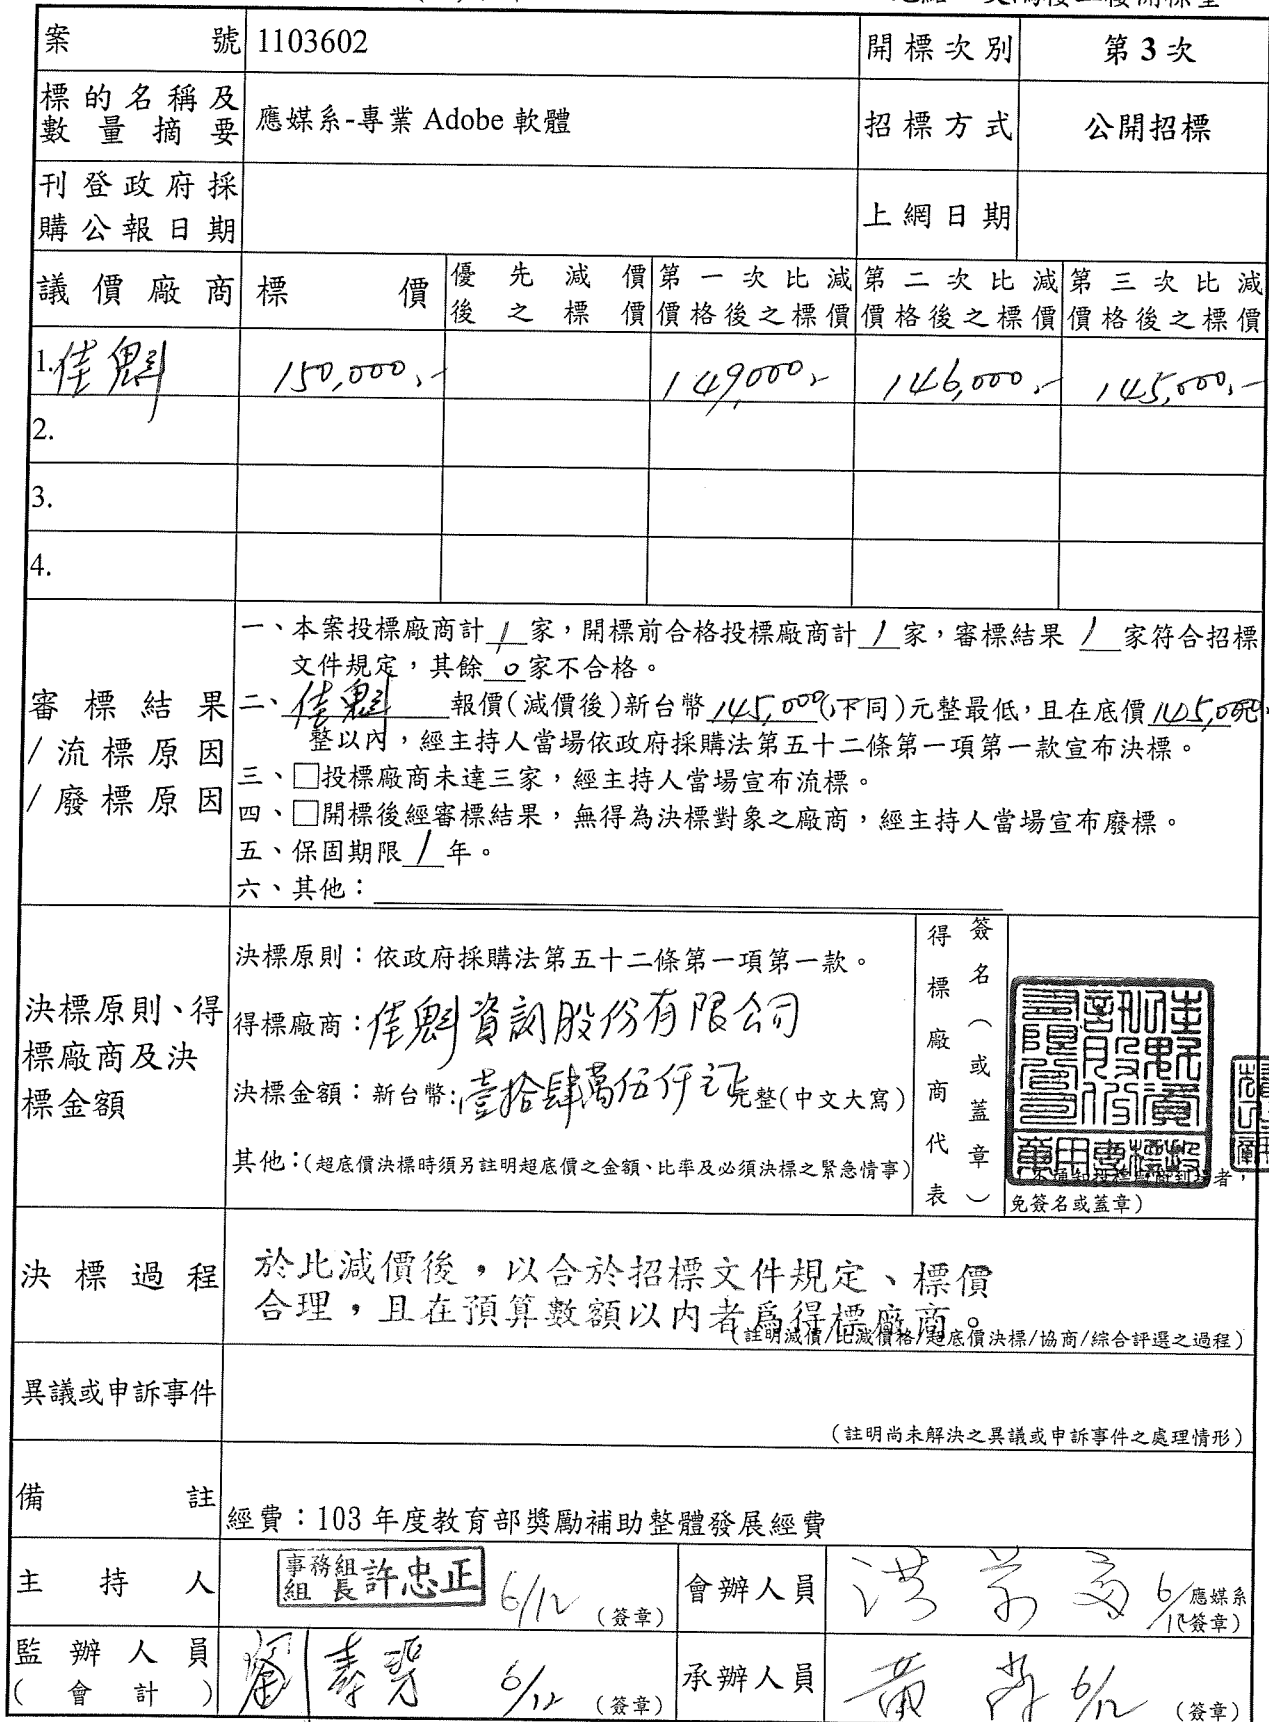 案號 1103602 開標次別 第3次
標的名稱及
數量摘要 應媒系-專業 Adobe 軟體 招標方式 公開招標
刊登政府採
購公報日期 上網日期
議價廠商 標價 優先減價 第一次比減 第二次比減 第三次比減
後之標價 價格後之標價 價格後之標價 價格後之標價
1.佳魁 150,000.- 149,000.- 146,000.- 145,000.-
2.
3.
4.
審標結果
/流標原因
/廢標原因
一、本案投標廠商計 1 家,開標前合格投標廠商計 1 家,審標結果 1 家符合招標
文件規定,其餘 0 家不合格。
二、佳魁 報價(減價後)新台幣 145,000 (下同)元整最低,且在底價 145,000元
整以內,經主持人當場依政府採購法第五十二條第一項第一款宣布決標。
三、□投標廠商未達三家,經主持人當場宣布流標。
四、□開標後經審標結果,無得為決標對象之廠商,經主持人當場宣布廢標。
五、保固期限 1 年。
六、其他:
決標原則、得
標廠商及決
標金額
決標原則:依政府採購法第五十二條第一項第一款。
得標廠商:佳魁資訊股份有限公司
決標金額:新台幣:壹拾肆萬伍仟元元整(中文大寫)
其他:(超底價決標時須另註明超底價之金額、比率及必須決標之緊急情事)
得標廠商代表
簽名(或蓋章)
佳魁資訊股份有限公司
投標專用章
免簽名或蓋章)
決標過程
於比減價後,以合於招標文件規定、標價
合理,且在預算數額以內者為得標廠商。
(註明減價/比減價格/超底價決標/協商/綜合評選之過程)
異議或申訴事件
(註明尚未解決之異議或申訴事件之處理情形)
備註
經費:103 年度教育部獎勵補助整體發展經費
主持人 事務組組長 許忠正 6/12 (簽章) 會辦人員 6/12 應媒系
(簽章)
監辦人員
(會計) 6/12 (簽章) 承辦人員 黃 6/12 (簽章)